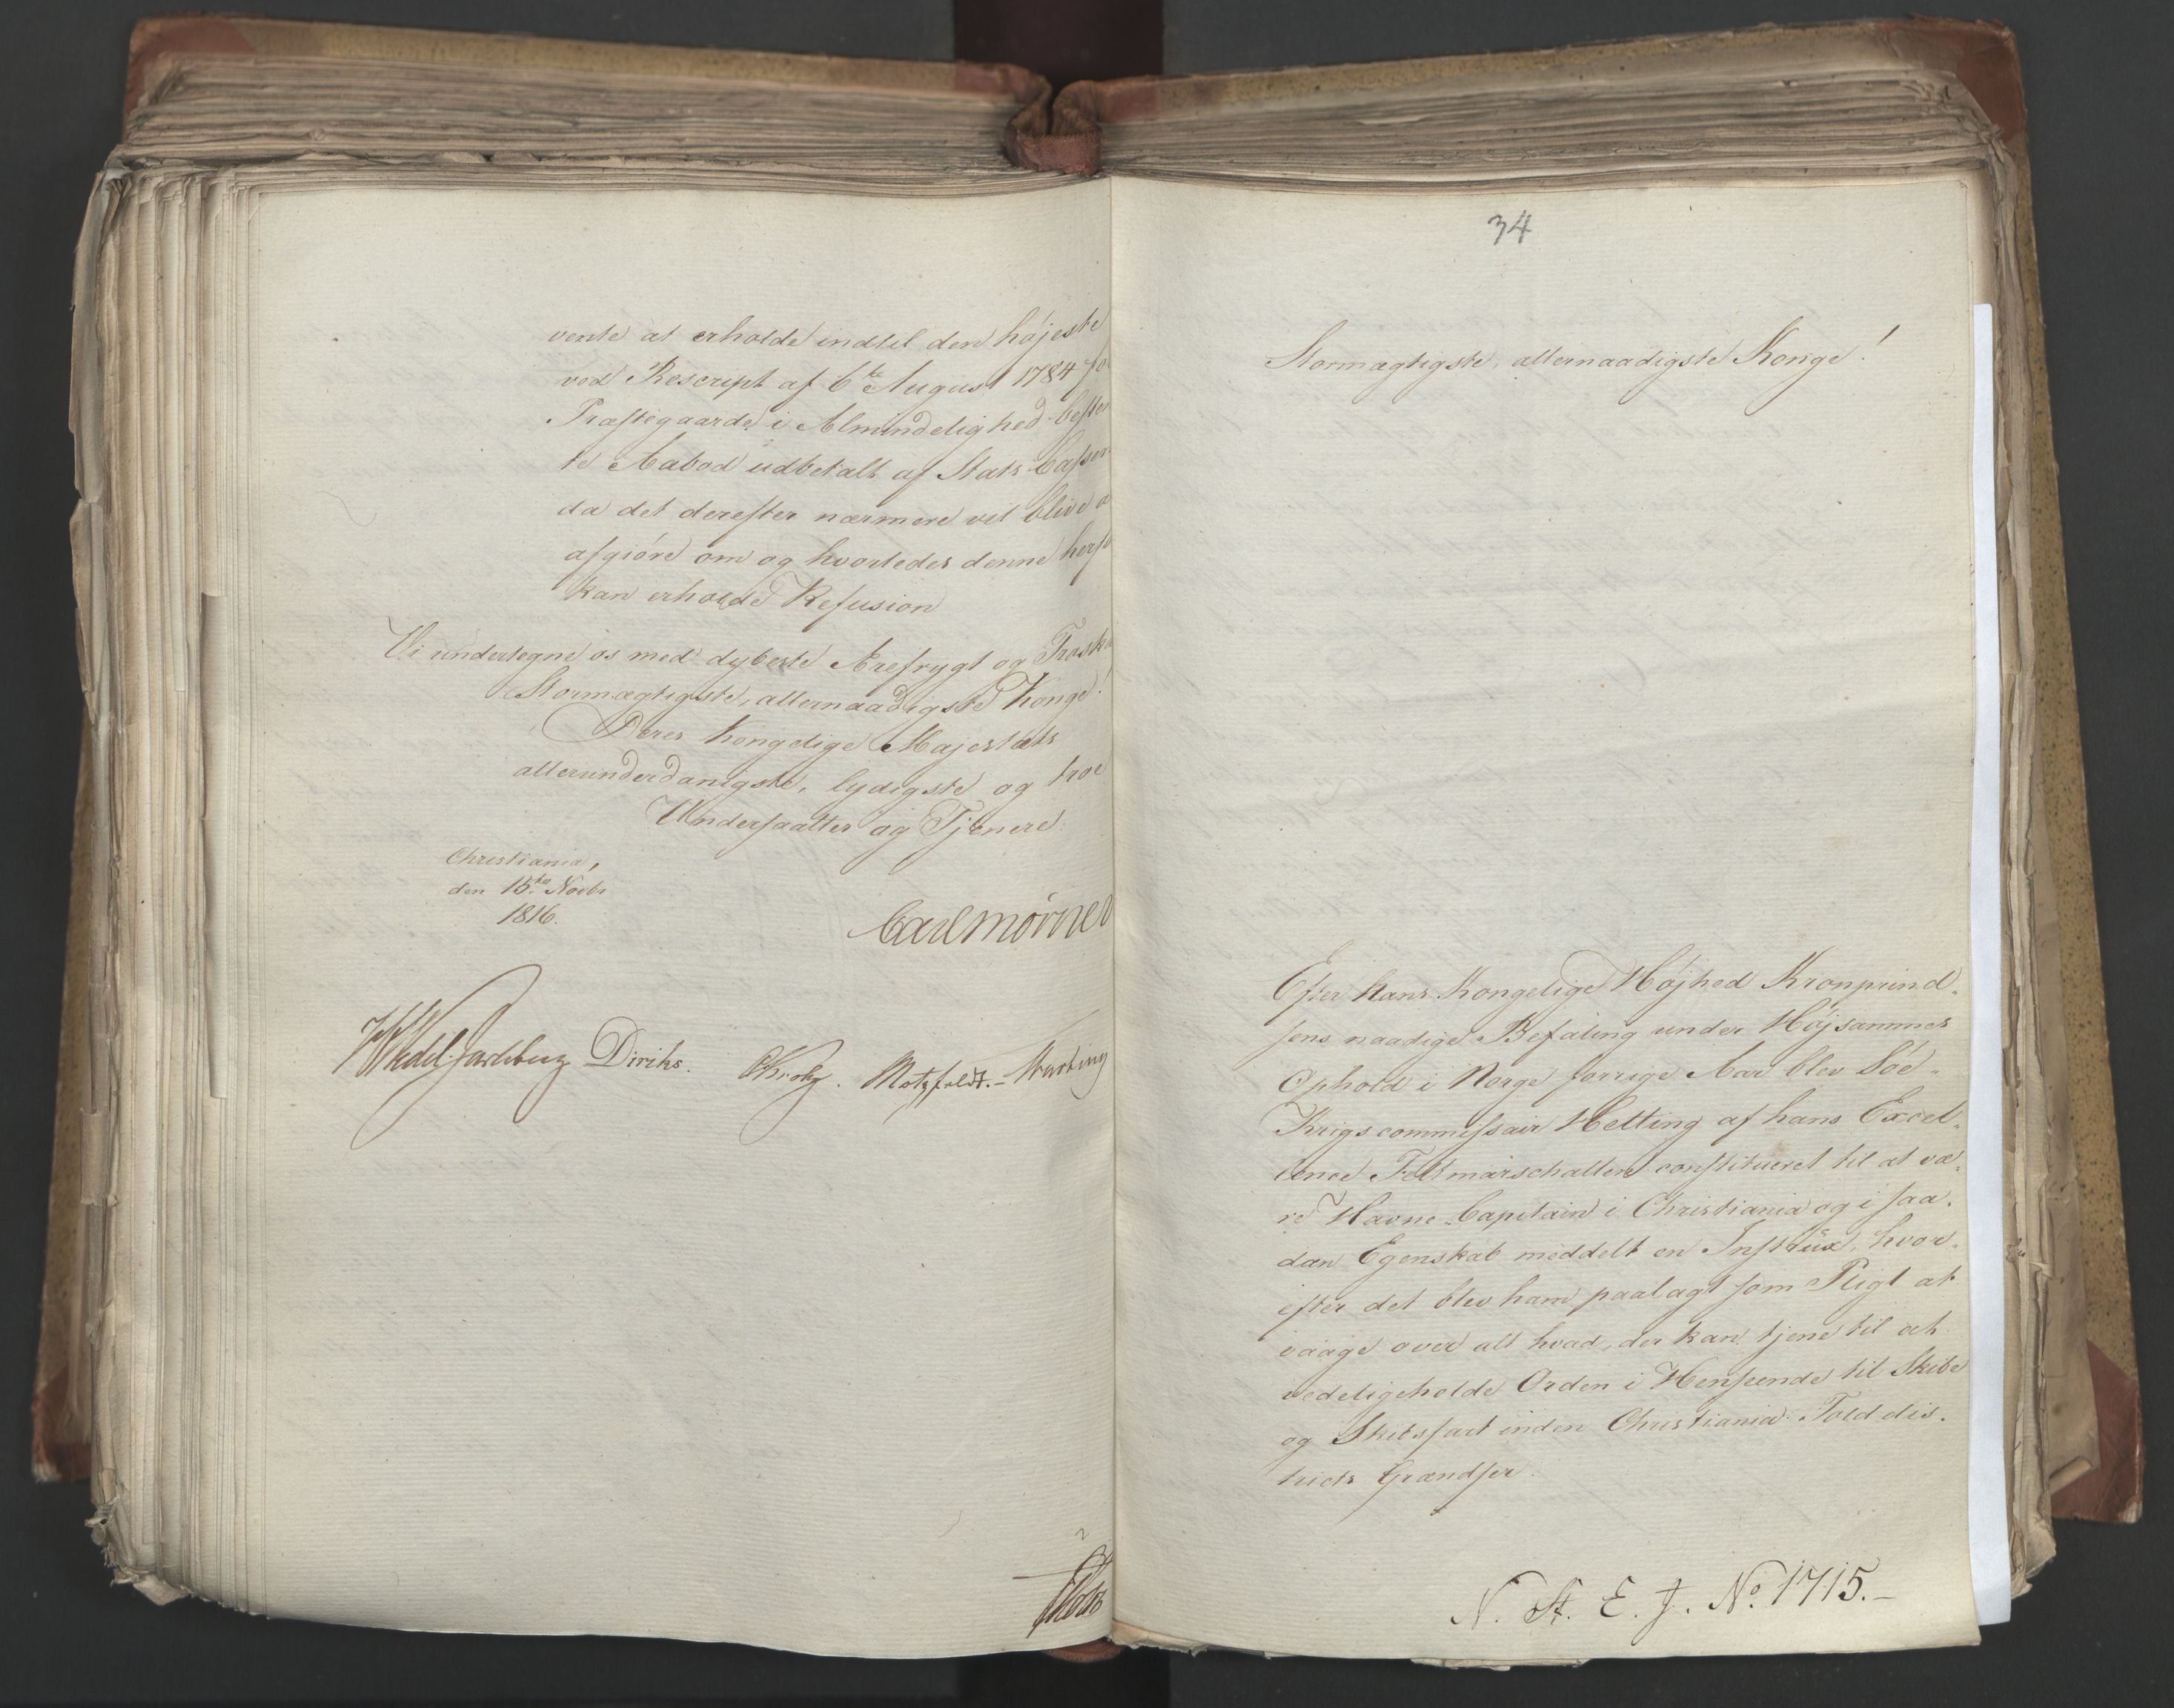 vente at erholde indtil den højeste
ved Rescript af 6te August 1784 for
Præstegaarde i Almindelighed
te Aabod udbetalt af Stats-Cassen
da det derefter nærmere vil blive
afgiöre om og hvorledes denne
kan erholde Refusion
Vi undertegne os med dybeste Ærefrygt og
Stormægtigste, allernaadigste Konge!
Deres Kongelige Majestæts
allerunderdanigste, lydigste og troe
Undersaatter og Tjenere
Christiania,
den 15de Novbr
1816.
Carl Mörner
Wedel Jarlsberg Diriks. Krohg. Motzfeldt.
34
Stormægtigste, allernaadigste Konge!
Efter Hans Kongelige Højhed Kronprind-
sens naadige Befaling under Højsammes
Ophold i Norge forrige Aar blev Söe-
Krigscommissair Hetting af hans Excel-
lence Feltmarschallen constitueret til at væ-
re Havne-Capitain i Christiania og i saa-
dan Egenskab meddelt en Instrüx, hvor-
efter det blev ham paalagt som Pligt at
vaage over alt hvad, der kan tjene til at
vedeligeholde Orden i Henseende til Skibe
og Skibsfart inden Christiania Told dis-
tricts Grændser.
N. St. E. J. No 1715.-